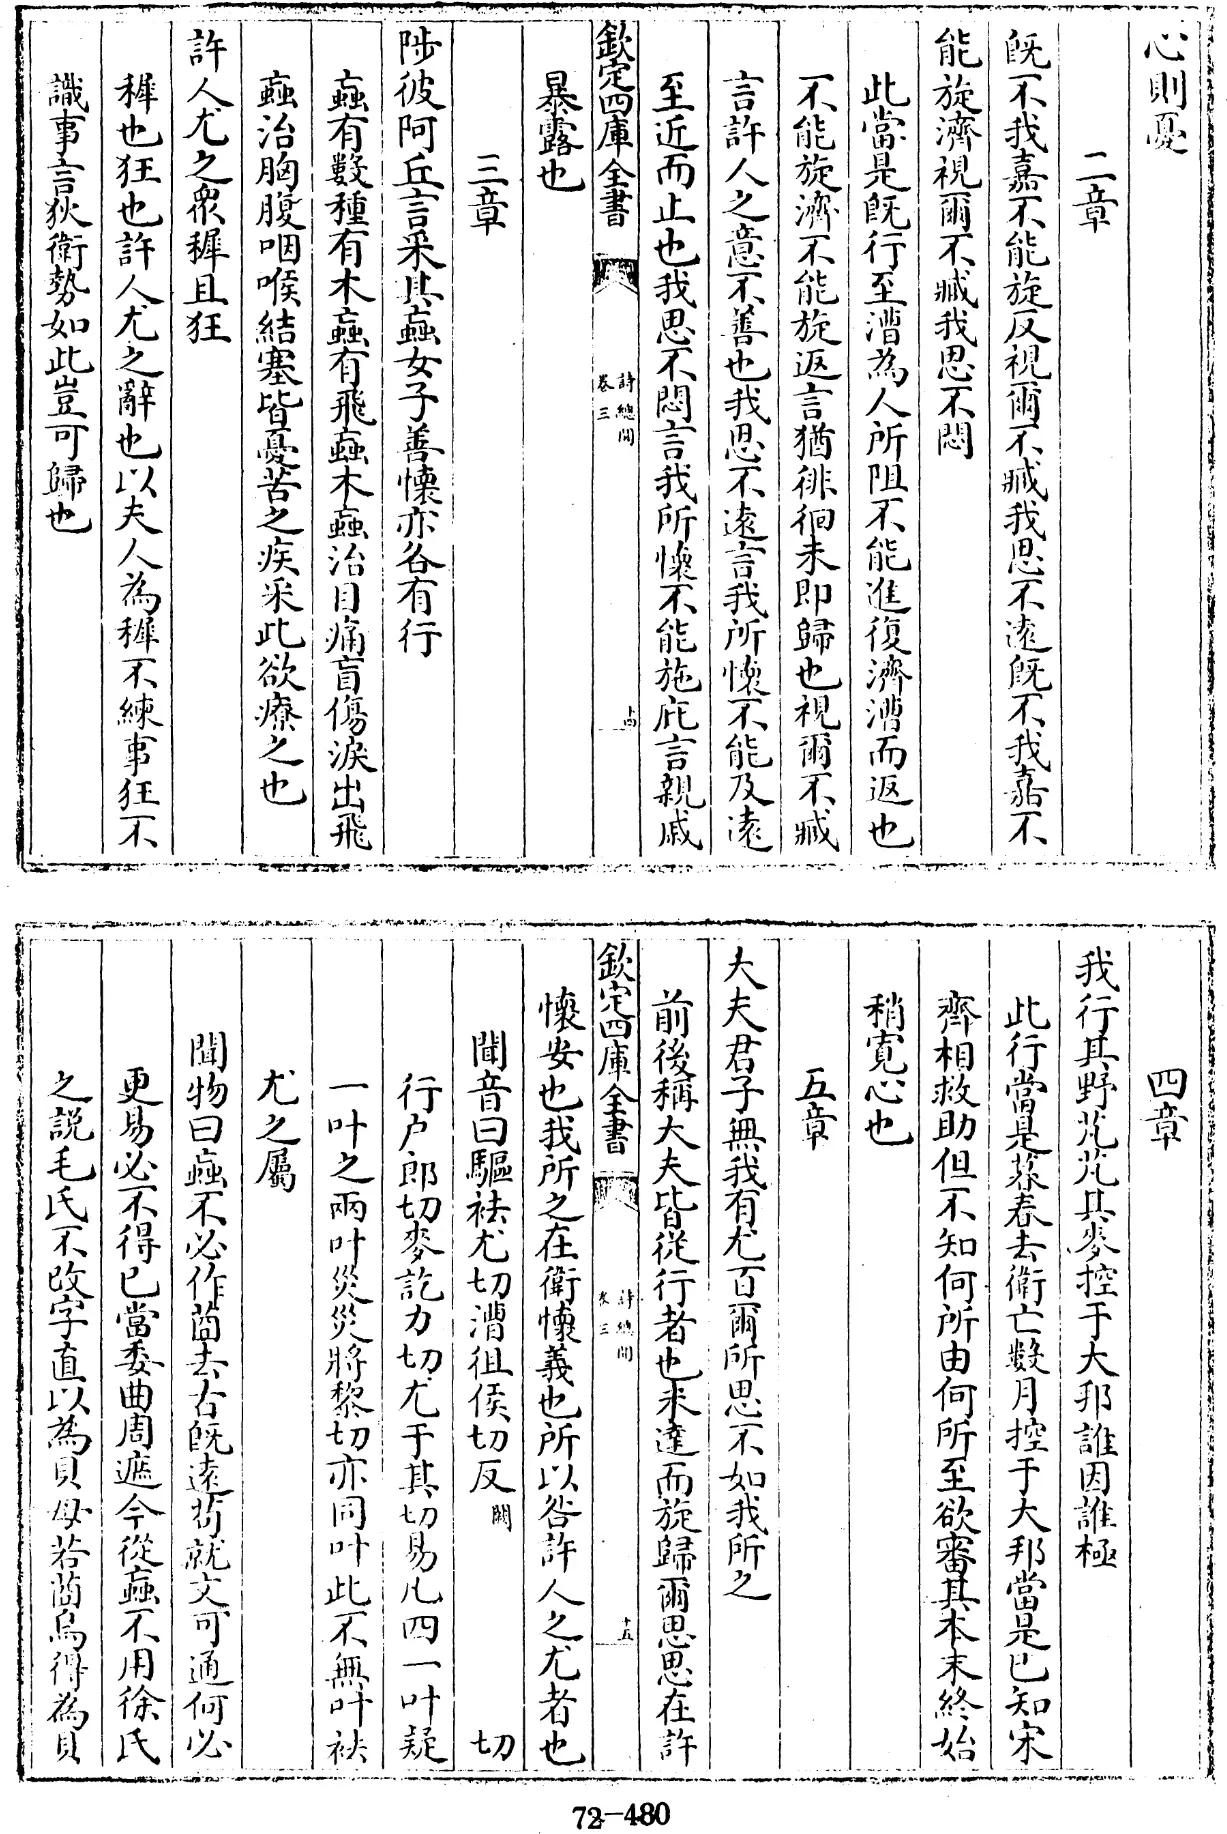 心則憂
二章
旣不我嘉不能旋反視爾不臧我思不逺旣不我嘉不
能旋濟視爾不臧我思不閟
此當是旣行至漕為人所阻不能進復濟漕而返也
不能旋濟不能旋返言猶徘徊未即歸也視爾不臧
言許人之意不善也我思不逺言我所懷不能及逺
至近而止也我思不閟言我所懷不能施庇言親戚
欽定四庫全書
詩總聞
卷三
十四
暴露也
三章
陟彼阿丘言采其蝱女子善懷亦各有行
蝱有數種有木蝱有飛蝱木蝱治目痛盲傷淚出飛
蝱治胸腹咽喉結塞皆憂苦之疾采此欲療之也
許人尤之衆穉且狂
穉也狂也許人尤之辭也以夫人為穉不練事狂不
識事言狄衛勢如此豈可歸也
四章
我行其野芃芃其麥控于大邦誰因誰極
此行當是暮春去衛亡數月控于大邦當是已知宋
齊相救助但不知何所由何所至欲審其本末終始
稍寛心也
五章
大夫君子無我有尤百爾所思不如我所之
前後稱大夫皆從行者也未達而旋歸爾思思在許
欽定四庫全書
詩總聞
卷三
十五
懷安也我所之在衛懷義也所以咎許人之尤者也
聞音曰驅祛尤切漕徂侯切反闕 切
行户郎切麥訖力切尤于其切易凡四一叶疑
一叶之兩叶災災將黎切亦同叶此不無叶袪
尤之屬
聞物曰蝱不必作莔去古旣逺茍就文可通何必
更易必不得已當委曲周遮今從蝱不用徐氏
之説毛氏不改字直以為貝母若莔烏得為貝
72-480